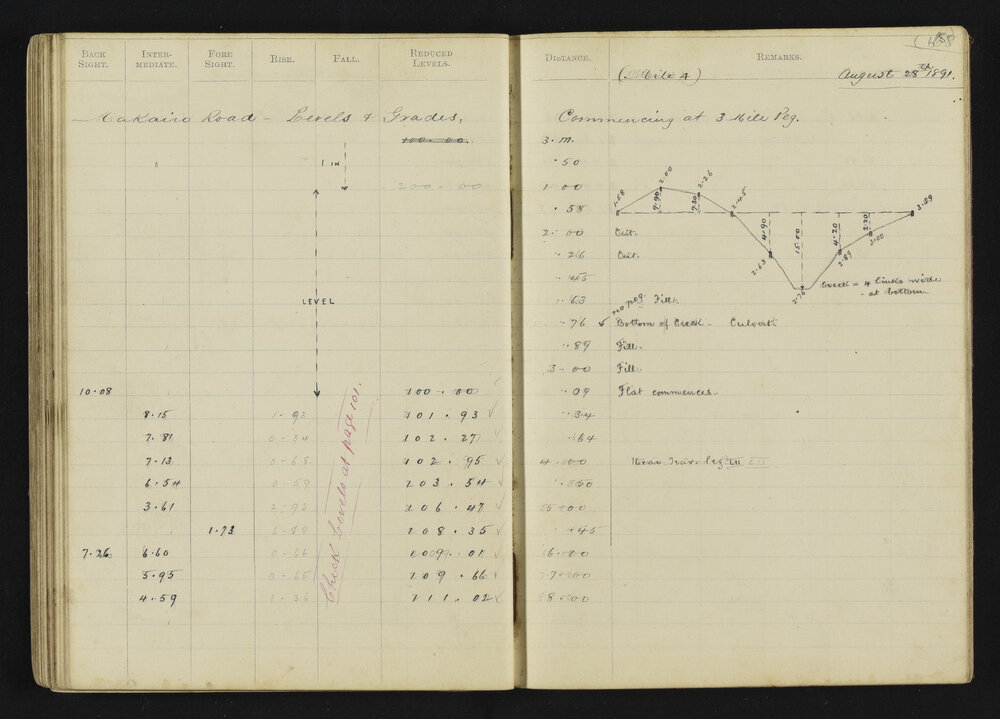 BACK SIGHT. INTER-MEDIATE. FORE SIGHT. RISE. FALL. REDUCED LEVELS.
Makairo Road - Levels & Grades,
100.00.
"
1 IN
200-00
LEVEL
10.08 100.00
8.15 1-93 101.93 ✓
7.81 0-34 102.27 ✓
7.13 0-68 102.95 ✓
6.54 0-59 103.54 ✓
3.61 2-93 106.47 ✓
1.73 1-88 108.35 ✓
7.26 6.60 0-66 109.01 ✓
5.95 0-65 109.66 ✓
4.59 1-36 111.02 ✓
Check Levels at page 101.
DISTANCE. REMARKS.
(Mile 4) August 28th 1891.
Commencing at 3 Mile Peg.
3.m.
.50
1.00
.58
2.00 Cut.
.26 Cut.
.45
.63 no peg Fill.
.76 ✓ Bottom of Creek - Culvert
.89 Fill.
3.00 Fill.
.09 Flat commences.
.34
.64
4.00 Near Trav. Peg LII LII
.50
5.00
.45
6.00
7.00
8.00
1.58 2.00 2.26 2.45 3.59
7.90 7.30 4.90 15.00 4.20 2.20
2.63 2.76 2.89 3.00
Creek = 4 links wide
at bottom